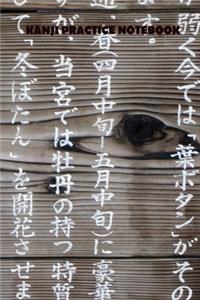 KANJI PRACTICE NOTEBOOK
ます。
が弱く今では「葉ボタン」がその
通、春四月中旬ー五月中旬)に豪華
すが、当宮では牡丹の持つ特質
して「冬ぼたん」を開花させま